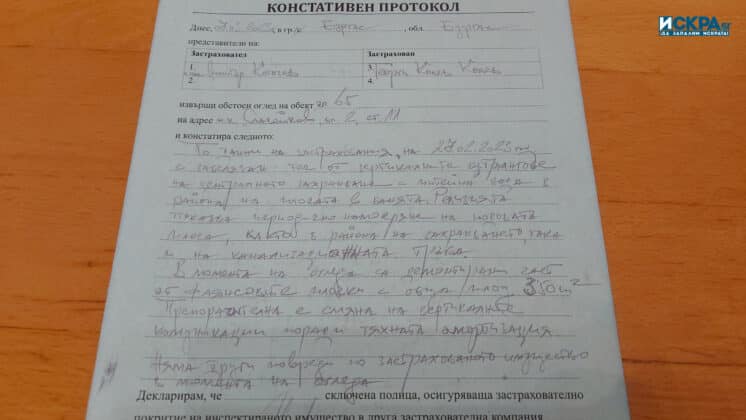 КОНСТАТИВЕН ПРОТОКОЛ
ИСКРА.БГ
ДА ЗАПАЛИМ ИСКРАТА!
Днес, в гр./с Бургас, обл. Бургас
представители на:
Застраховател Застрахован
1. Димитър 3. Георги Колев
2. 4.
извърши обстоен оглед на обект ап 65
на адрес ж.к. Славейков, бл 2, ст. 11
и констатира следното:
По данни на застрахования, на 27.02.2023
е забелязан теч от вертикалните щрангове
на централното захранване с питейна вода в
района на мивката в банята.
показва периодично намокряне на подовата
плоча, както в района на захранването, така
и на канализационната тръба.
В момента на огледа са демонтирани част
от фаянсовите плочки с обща площ
Препоръчителна е смяна на вертикалните
комуникации поради тяхната амортизация
Няма други повреди по застрахованото имущество
в момента на огледа
Декларирам, че сключена полица, осигуряваща застрахователно
покритие на инспектираното имущество в друга застрахователна компания